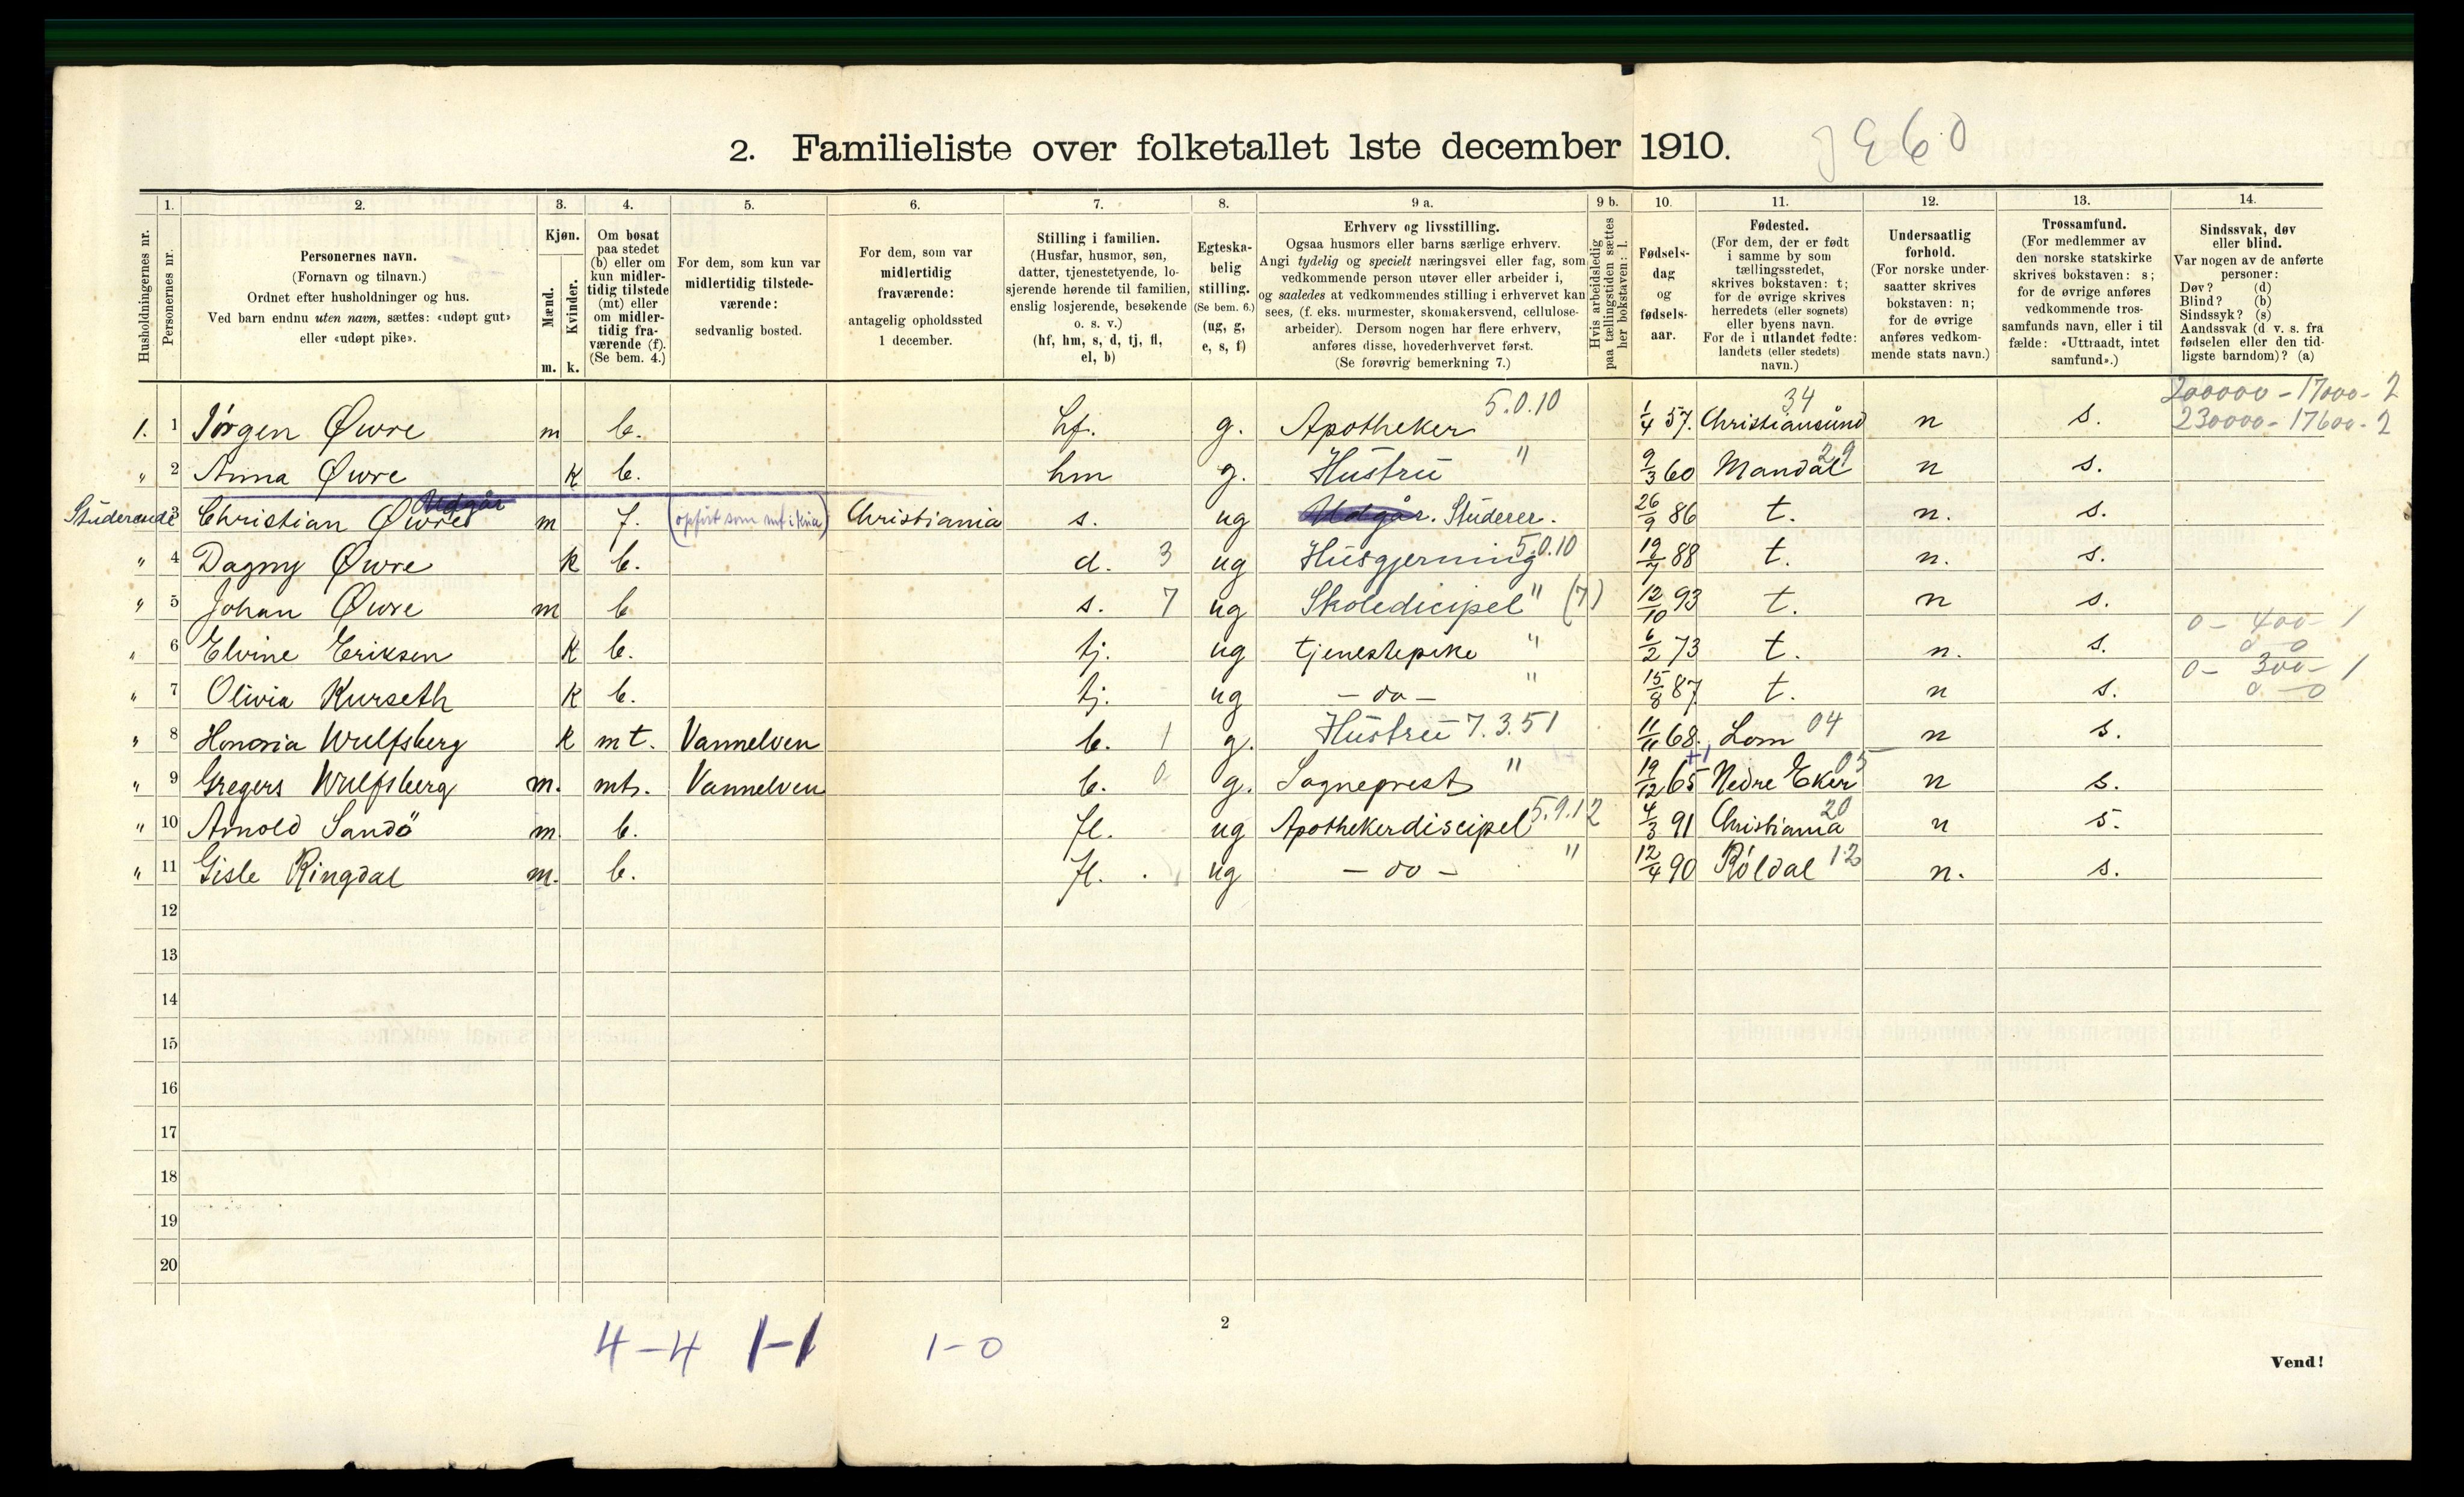 2. Familieliste over folketallet 1ste december 1910.
1. 2. 3. 4. 5. 6. 7. 8. 9 a. 9 b. 10. 11. 12. 13. 14.
Husholdningernes nr.
Personernes nr.
Personernes navn.
(Fornavn og tilnavn.)
Ordnet efter husholdninger og hus.
Ved barn endnu uten navn, sættes: «udøpt gut»
eller «udøpt pike».
Kjøn.
Mænd.
Kvinder.
m. k.
Om bosat
paa stedet
(b) eller om
kun midler-
tidig tilstede
(mt) eller
om midler-
tidig fra-
værende (f).
(Se bem. 4.)
For dem, som kun var
midlertidig tilstede-
værende:
sedvanlig bosted.
For dem, som var
midlertidig
fraværende:
antagelig opholdssted
1 december.
Stilling i familien.
(Husfar, husmor, søn,
datter, tjenestetyende, lo-
sjerende hørende til familien,
enslig losjerende, besøkende
o. s. v.)
(hf, hm, s, d, tj, fl,
el, b)
Egteska-
belig
stilling.
(Se bem. 6.)
(ug, g,
e, s, f)
Erhverv og livsstilling.
Ogsaa husmors eller barns særlige erhverv.
Angi tydelig og specielt næringsvei eller fag, som
vedkommende person utøver eller arbeider i,
og saaledes at vedkommendes stilling i erhvervet kan
sees, (f. eks. murmester, skomakersvend, cellulose-
arbeider). Dersom nogen har flere erhverv,
anføres disse, hovederhvervet først.
(Se forøvrig bemerkning 7.)
Hvis arbeidsledig
paa tællingstiden sættes
her bokstaven: l.
Fødsels-
dag
og
fødsels-
aar.
Fødested.
(For dem, der er født
i samme by som
tællingsstedet,
skrives bokstaven: t;
for de øvrige skrives
herredets (eller sognets)
eller byens navn.
For de i utlandet fødte:
landets (eller stedets)
navn.)
Undersaatlig
forhold.
(For norske under-
saatter skrives
bokstaven: n;
for de øvrige
anføres vedkom-
mende stats navn.)
Trossamfund.
(For medlemmer av
den norske statskirke
skrives bokstaven: s;
for de øvrige anføres
vedkommende tros-
samfunds navn, eller i til
fælde: «Uttraadt, intet
samfund».)
Sindssvak, døv
eller blind.
Var nogen av de anførte
personer:
Døv? (d)
Blind? (b)
Sindssyk? (s)
Aandssvak (d v. s. fra
fødselen eller den tid-
ligste barndom)? (a)
200000 - 17000 - 2
1. 1 Jørgen Øwre m b. hf. g. Apotheker 5.0.10 1/4 57. Christiansund 34 n s. 230000 - 17600 - 2
" 2 Anna Øwre k b. hm g. Hustru " 9/3 60 Mandal 29 n s.
Studerende 3 Christian Øwre Udgår m f. (opført som mt i Kria) Christiania s. ug Udgår. Studerer. 26/9 86 t. n. s.
" 4 Dagny Øwre k b. d. 3 ug Husgjerning 5.0.10 19/7 88 t. n. s.
" 5 Johan Øwre m b s. 7 ug Skoledicipel " (7) 12/10 93 t. n s.
" 6 Elvine Eriksen k b. tj. ug tjenestepike " 6/2 73 t. n. s. 0 - 400 - 1
0 - 0
" 7 Olivia Kurseth k b. tj. ug - do - " 15/8 87 t. n s. 0 - 300 - 1
0 - 0
" 8 Honoria Wulfsberg k mt. Vannelven b. 1 g. Hustru 7.3.51 11/11 68. Lom 04 n s.
" 9 Gregers Wulfsberg m. mt. Vannelven b. 0 g. Sogneprest " 19/12 65 Nedre Eker 05 n s.
" 10 Arnold Sandö m. b. fl. ug Apothekerdiscipel 5.9.12 4/3 91 Christiania 20 n s.
" 11 Gisle Ringdal m. b. fl. ug - do - " 12/4 90 Röldal 12 n. s.
12
13
14
15
16
17
18
19
20
4-4 1-1 1-0
2
Vend!